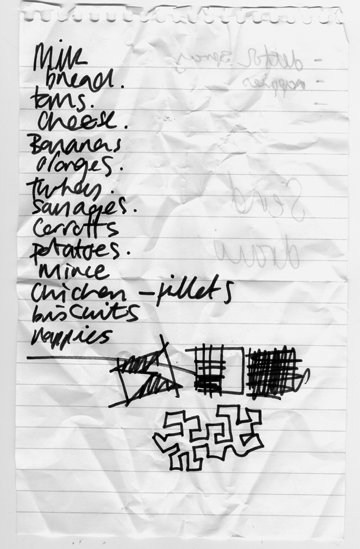 Milk
bread.
toms.
cheese.
Bananas
oranges.
turkey.
sausages.
carrotts
potatoes.
mince
chicken - fillets
biscuits
nappies